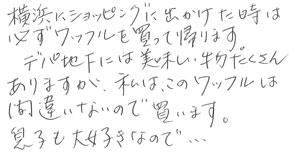 横浜にショッピングに出かけた時は
必ずワッフルを買って帰ります。
デパ地下には美味しい物たくさん
ありますが、私は、このワッフルは
間違いないので買います。
息子も大好きなので…